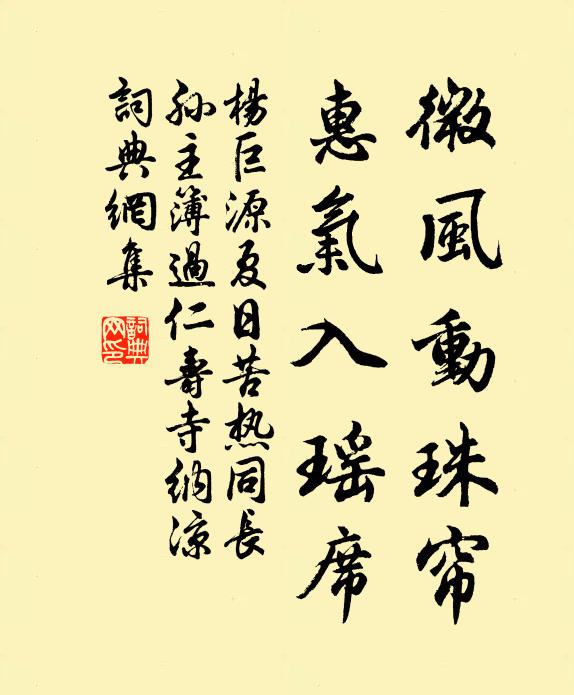 微風動珠帘
惠氣入瑶席
楊巨源夏日苦热同長
孫主簿過仁壽寺納凉
詞典網集
詞典网印